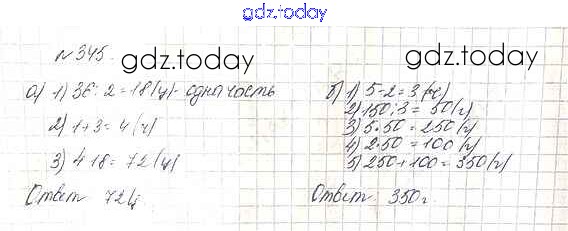 gdz.today
№ 345.
gdz.today
gdz.today
а) 1) 36 : 2 = 18 (ц) - одна часть
2) 1+3 = 4 (ч)
3) 4·18 = 72 (ц)
Ответ 72 ц
б) 1) 5-2 = 3 (ч)
2) 150 : 3 = 50 (г)
3) 5·50 = 250 (г)
4) 2·50 = 100 (г)
5) 250+100 = 350 (г)
Ответ: 350 г.